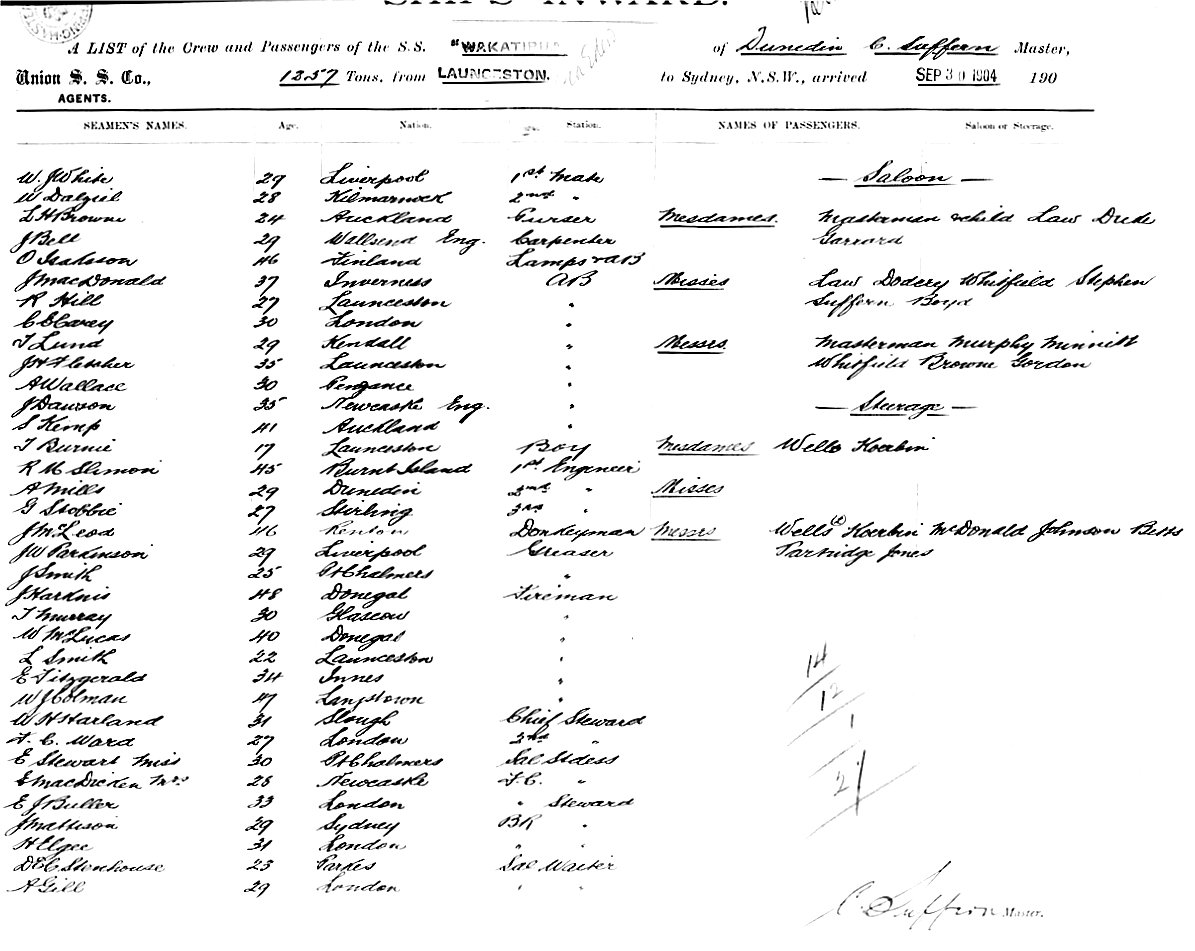 SHIPS INWARD.
A LIST of the Crew and Passengers of the S.S. "WAKATIPU" of Dunedin C. Suffern Master,
Union S. S. Co., 1257 Tons, from LAUNCESTON. to Sydney, N.S.W., arrived SEP 30 1904 190
AGENTS.
SEAMEN'S NAMES. Age. Nation. Station. NAMES OF PASSENGERS. Saloon or Steerage.
W. J White 29 Liverpool 1st Mate — Saloon —
W Dalziel 28 Kilmarnock 2nd "
L H Browne 24 Auckland Purser Mesdames. Masterman & child Law Dude
J Bell 29 Wallsend Eng. Carpenter Garrard
O Isakson 46 Finland Lamps & AB
J MacDonald 37 Inverness AB Misses Law Dodery Whitfield Stephen
R Hill 27 Launceston " Suffern Boyd
C E Carey 30 London "
T Lund 29 Kendall " Messrs. Masterman Murphy Minnitt
J H Fletcher 35 Launceston " Whitfield Browne Gordon
A Wallace 30 Penzance "
J Dawson 35 Newcastle Eng. " — Steerage —
S Kemp 41 Auckland "
T Burnie 17 Launceston Boy Mesdames Wells Koerbin
R McSlimon 45 Burnt Island 1st Engineer
A Mills 29 Dunedin 2nd " Misses
G Stobbie 27 Stirling 3rd "
J McLeod 46 Renton Donkeyman Messrs Wells Koerbin McDonald Johnson Betts
J W Parkinson 29 Liverpool Greaser Partridge Jones
J Smith 25 Pt Chalmers "
J Harknis 48 Donegal Fireman
T Murray 30 Glascow "
W McLucas 40 Donegal "
L Smith 22 Launceston "
E Fitzgerald 34 Innes "
W J Colman 47 Langstown "
W H Harland 31 Slough Chief Steward
F. C. Ward 27 London 2nd "
E Stewart Miss 30 Pt Chalmers Sal Stdess
E MacDicken Mrs 28 Newcastle F.C. "
E J Buller 33 London " Steward
J Mattison 29 Sydney BR "
H Elgee 31 London " "
D E C Stenhouse 23 Parkes Sal Waiter
A Gill 29 London " "
14
12
1
27
C. Suffern Master.